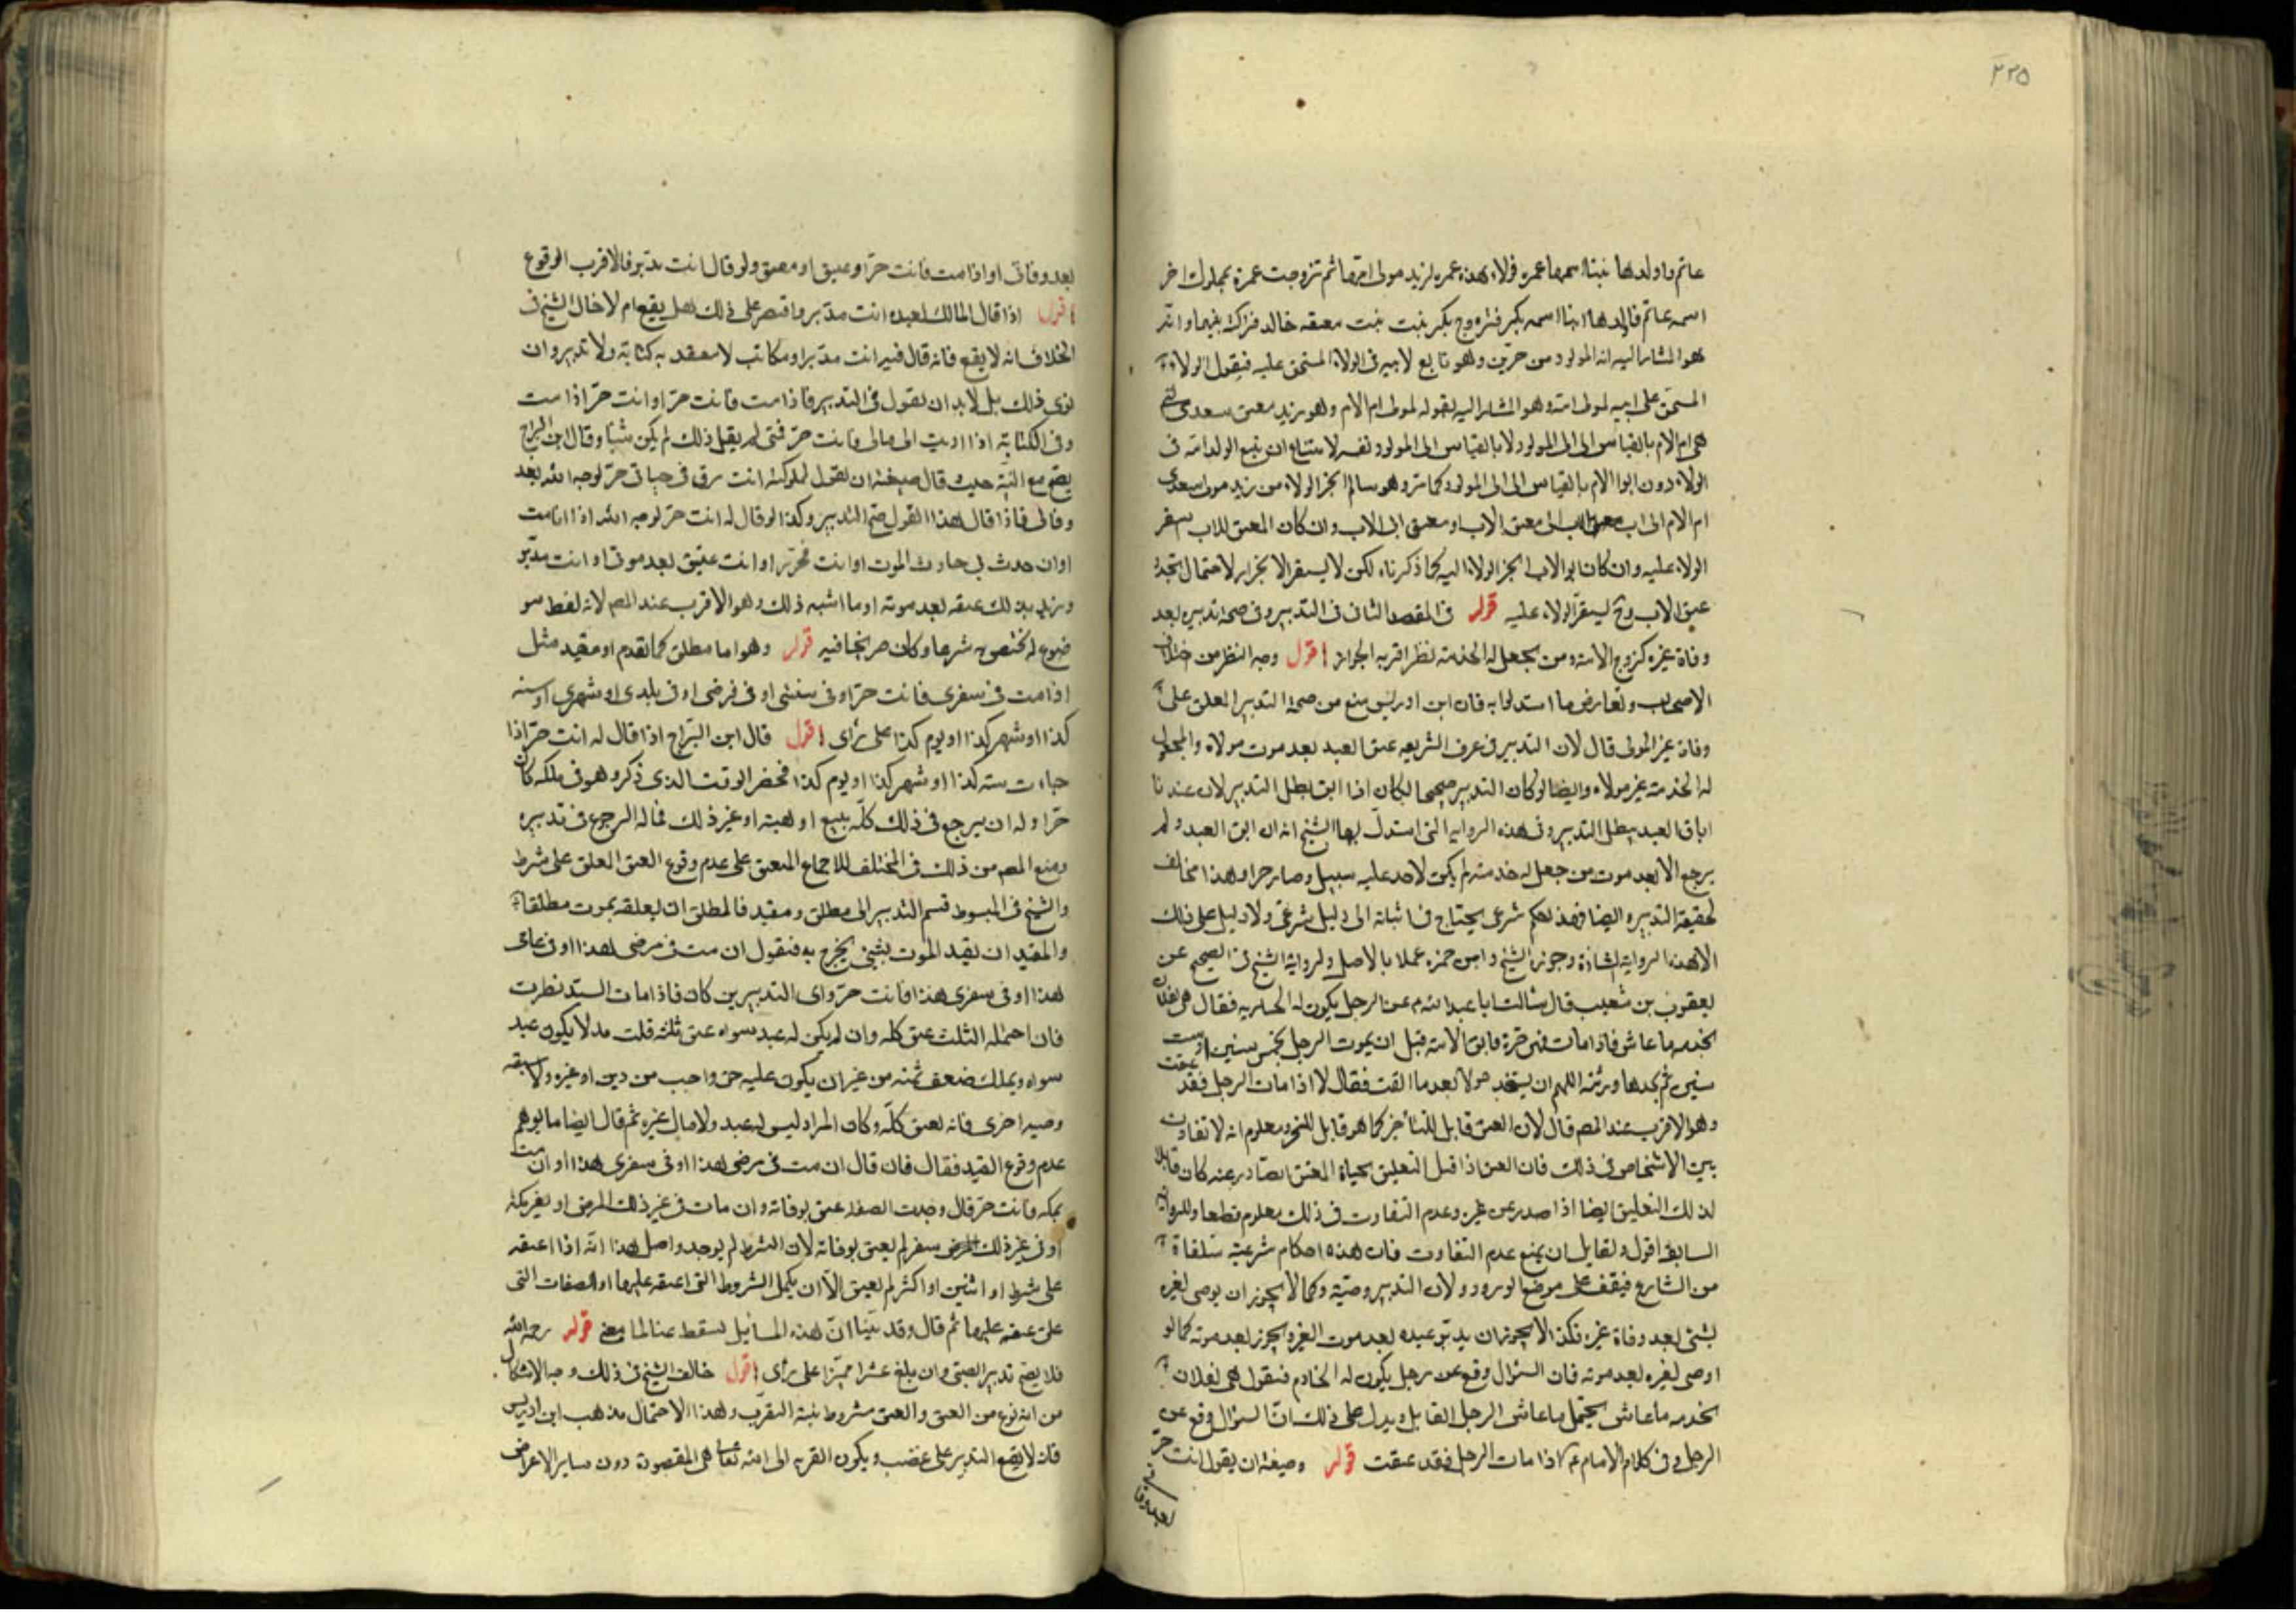 ٢٢٥
غانم فاولدها بنتا اسمها عمره فولاء هذه عمره لزيد مولى امها ثم تزوجت عمرة بمملوك اخر
اسمه غانم فاولدها ابنا اسمه بكر فتزوج بكر بنت بنت معتقه خالد
هو المشار اليه انه المولود من حرين وهو تابع لابيه فى الولاء المستحق عليه فيقول الولاء
المستحق على ابيه لمولى امه وهو المشار اليه بقوله لمولى ام الام وهو زيد معتق سعدى
هى ام الام بالقياس الى المولود لا بالقياس الى المولود نفسه لامتناع ان يتبع الولد امه فى
الولاء دون ابوا الام بالقياس الى المولود كما مر وهو سالم انجر الولاء من زيد مولى سعدى
ام الام الى اب الى معتق الاب او معتق ابى الاب وان كان المعتق للاب يستقر
الولاء عليه وان كان ابو الاب انجر الولاء اليه كما ذكرناه لكن لا يستقر الانجرار لاحتمال تجدد
عتق الاب وح ليستقر الولاء عليه قوله فى المقصد الثانى فى التدبير وفى صحة تدبيره بعد
وفاة غيره كزوج الامة ومن يجعل له الخدمة نظر اقربه الجواز اقول وجه النظر من اختلاف
الاصحاب وتعارض ما استدلوا به فان ابن ادريس منع من صحة التدبير المعلق على
وفاة غير المولى قال لان التدبير فى عرف الشريعه عتق العبد بعد موت مولاه والمجعول
له الخدمة غير مولاه وايضا لو كان التدبير صحيحا لكان اذا ابق ابطل التدبير لان عندنا
اباق العبد يبطل التدبير وفى هذه الرواية التى استدل بها الشيخ انه ان ابق العبد ولم
يرجع الا بعد موت من جعل له خدمته لم يكن لاحد عليه سبيل وصار حرا وهذا مخالف
لحقيقة التدبير وايضا فهذا حكم شرعى يحتاج فى اثباته الى دليل شرعى ولا دليل على ذلك
الا هذه الرواية الشاذة وجوزه الشيخ وابن حمزه عملا بالاصل ولرواية الشيخ فى الصحيح عن
يعقوب بن شعيب قال سالت ابا عبد الله ع عن الرجل يكون له الجاريه فقال هى لفلان
تخدمه ما عاش فاذا مات فهى حرة فابق الامة قبل ان يموت الرجل بخمس سنين او ست
سنين ثم يجدها ورثته الهم ان يستخدموها بعد ما ابقت فقال لا اذا مات الرجل فقد عتقت
وهو الاقرب عند المص قال لان العتق قابل للتاخير كما هو قابل للتنجز ومعلوم انه لا تفاوت
بين الاشخاص فى ذلك فان العتق اذا قبل التعليق بحياة المعتق الصادر عنه كان قابلا
لذلك التعليق ايضا اذا صدر عن غيره وعدم التفاوت فى ذلك معلوم قطعا وللرواية
السابقة اقول ولقايل ان يمنع عدم التفاوت فان هذه احكام شرعية متلقاة
من الشارع فيقف على موضع الورود ولان التدبير وصية وكما لا يجوز ان يوصى لغيره
بشئ بعد وفاة غيره فكذا لا يجوز ان يدبر عبيده بعد موت الغير ويجوز بعد موته كما لو
اوصى لغيره بعد موته فان السؤال وقع عن رجل يكون له الخادم فيقول هى لفلان
تخدمه ما عاش يحتمل ما عاش الرجل القايل ويدل على ذلك ان السؤال وقع عن
الرجل وفى كلام الامام ع اذا مات الرجل فقد عتقت قوله وصيغته ان يقول انت حر
بعد وفاتى
بعد وفاتى او اذا مت فانت حر او عتيق او معتق ولو قال انت مدبر فالاقرب الوقوع
اقول اذا قال المالك لعبده انت مدبر واقتصر على ذلك هل يقع ام لا قال الشيخ فى
الخلاف انه لا يقع فانه قال فيه انت مدبر او مكاتب لا ينعقد به كتابة ولا تدبير وان
نوى ذلك بل لابد ان يقول فى التدبير فاذا مت فانت حر او انت حر اذا مت
وفى الكتابة اذا اديت الى مالى فانت حر فمتى لم يقل ذلك لم يكن شيئا وقال ابن البراج
يصح مع النية حيث قال صيغته ان يقول لمملوكه انت رق فى حياتى حر لوجه الله بعد
وفاتى فاذا قال هذا القول صح التدبير وكذا لو قال له انت حر لوجه الله اذا انا مت
او ان حدث بى حادث الموت او انت محرر او انت عتيق بعد موتى او انت مدبر
ويريد بذلك عتقه بعد موته او ما اشبه ذلك وهو الاقرب عند المص لانه لفظ مو
ضوع له مختص به شرعا وكان صريحا فيه قوله وهو اما مطلق كما تقدم او مقيد مثل
اذا مت فى سفرى فانت حر او فى سنتى او فى مرضى او فى بلدى او شهرى او سنه
كذا او شهر كذا او يوم كذا على رأى اقول قال ابن البراج اذا قال له انت حر اذا
جاءت سنه كذا او شهر كذا او يوم كذا فحضر الوقت الذى ذكر وهو فى ملكه كان
حرا وله ان يرجع فى ذلك كله ببيع او هبة او غير ذلك فماله الرجوع فى تدبيره
ومنع المص من ذلك فى المختلف للاجماع على عدم وقوع العتق المعلق على شرط
والشيخ فى المبسوط قسم التدبير الى مطلق ومقيد فالمطلق ان يعلقه بموت مطلقا
والمقيد ان يقيد الموت بشئ يخرج به فيقول ان مت فى مرضى هذا او فى عامى
هذا او فى سفرى هذا فانت حر واى التدبيرين كان فاذا مات السيد نظرت
فان احتمله الثلث عتق كله وان لم يكن له عبد سواه عتق ثلثه قلت مد لا يكون عبد
سواه ويملك ضعف ثمنه من غير ان يكون عليه حق واجب من دين او غيره ولا سبقه
وصيه اخرى فانه يعتق كله وكان المراد ليس له عبد ولا مال غيره ثم قال ايضا ما يوهم
عدم وقوع المقيد فقال فان قال ان مت فى مرضى هذا او فى سفرى هذا او ان مت
بمكه فانت حر قال وجدت الصفه عتق بوفاته وان مات فى غير ذلك المرض او بغير مكه
او فى غير ذلك سفر لم يعتق بوفاته لان الشرط لم يوجد واصل هذا انه اذا اعتقه
على شرط او اثنين او اكثر لم يعتق الا ان يكمل الشروط التى اعتقه عليها او الصفات التى
علق عتقه عليها ثم قال وقد بينا ان هذه المسايل تسقط عنا لما مضى قوله رحمه الله
فلا يصح تدبير الصبى وان بلغ عشرا مميزا على رأى اقول خالف الشيخ فى ذلك وجه الاشكال
من انه نوع من العتق والعتق مشروط بنية التقرب وهذا الاحتمال مذهب ابن ادريس
فانه لا يقع التدبير على غضب ويكون القربه الى الله تعالى هى المقصودة دون ساير الاعراض